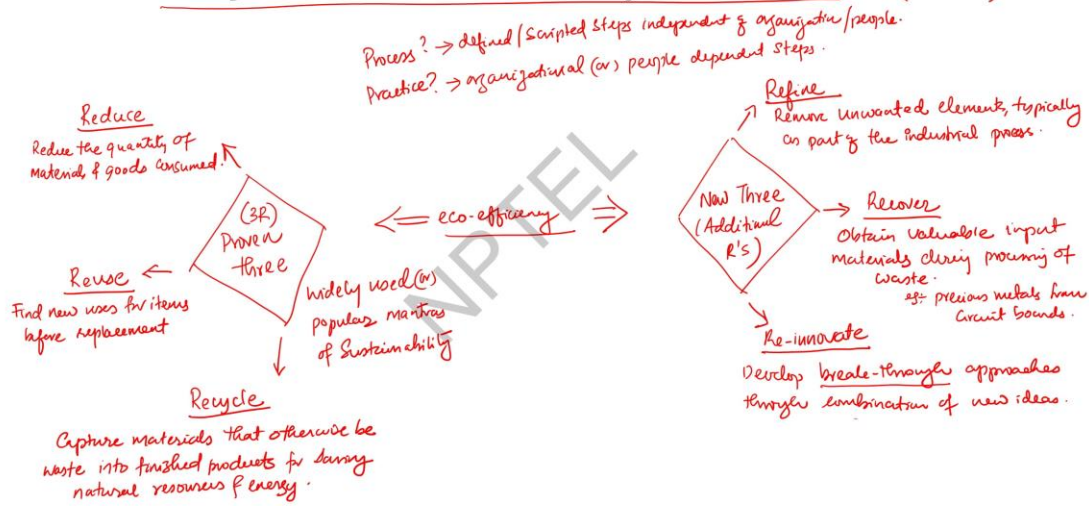 Process? → defined / Scripted Steps independent of organization/people.
Practice? → organizational (or) people dependent steps.
Reduce
Reduce the quantity of
materials & goods consumed.
(3R)
Proven
three
Reuse
Find new uses for items
before replacement
Recycle
Capture materials that otherwise be
waste into finished products for saving
natural resources & energy.
⇐ eco-efficiency ⇒
widely used (or)
popular mantras
of Sustainability
NPTEL
New Three
(Additional
R's)
Refine
Remove unwanted elements, typically
as part of the industrial process.
Recover
Obtain valuable input
materials during processing of
waste.
eg:- precious metals from
Circuit boards.
Re-innovate
Develop break-through approaches
through combination of new ideas.